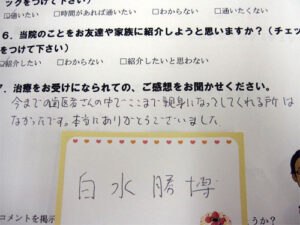 ックをつけて下さい）
☑通いたい □時間があれば通いたい □わからない □通いたくない
6. 当院のことをお友達や家族に紹介しようと思いますか？（チェッ
をつけて下さい）
☑紹介したい □わからない □紹介したいと思わない
7. 治療をお受けになられての、ご感想をお聞かせください。
今までの歯医者さんの中でここまで親身になってしてくれる所は
なかったです。本当にありがとうございました
白水勝博
コメントを掲示
うか？